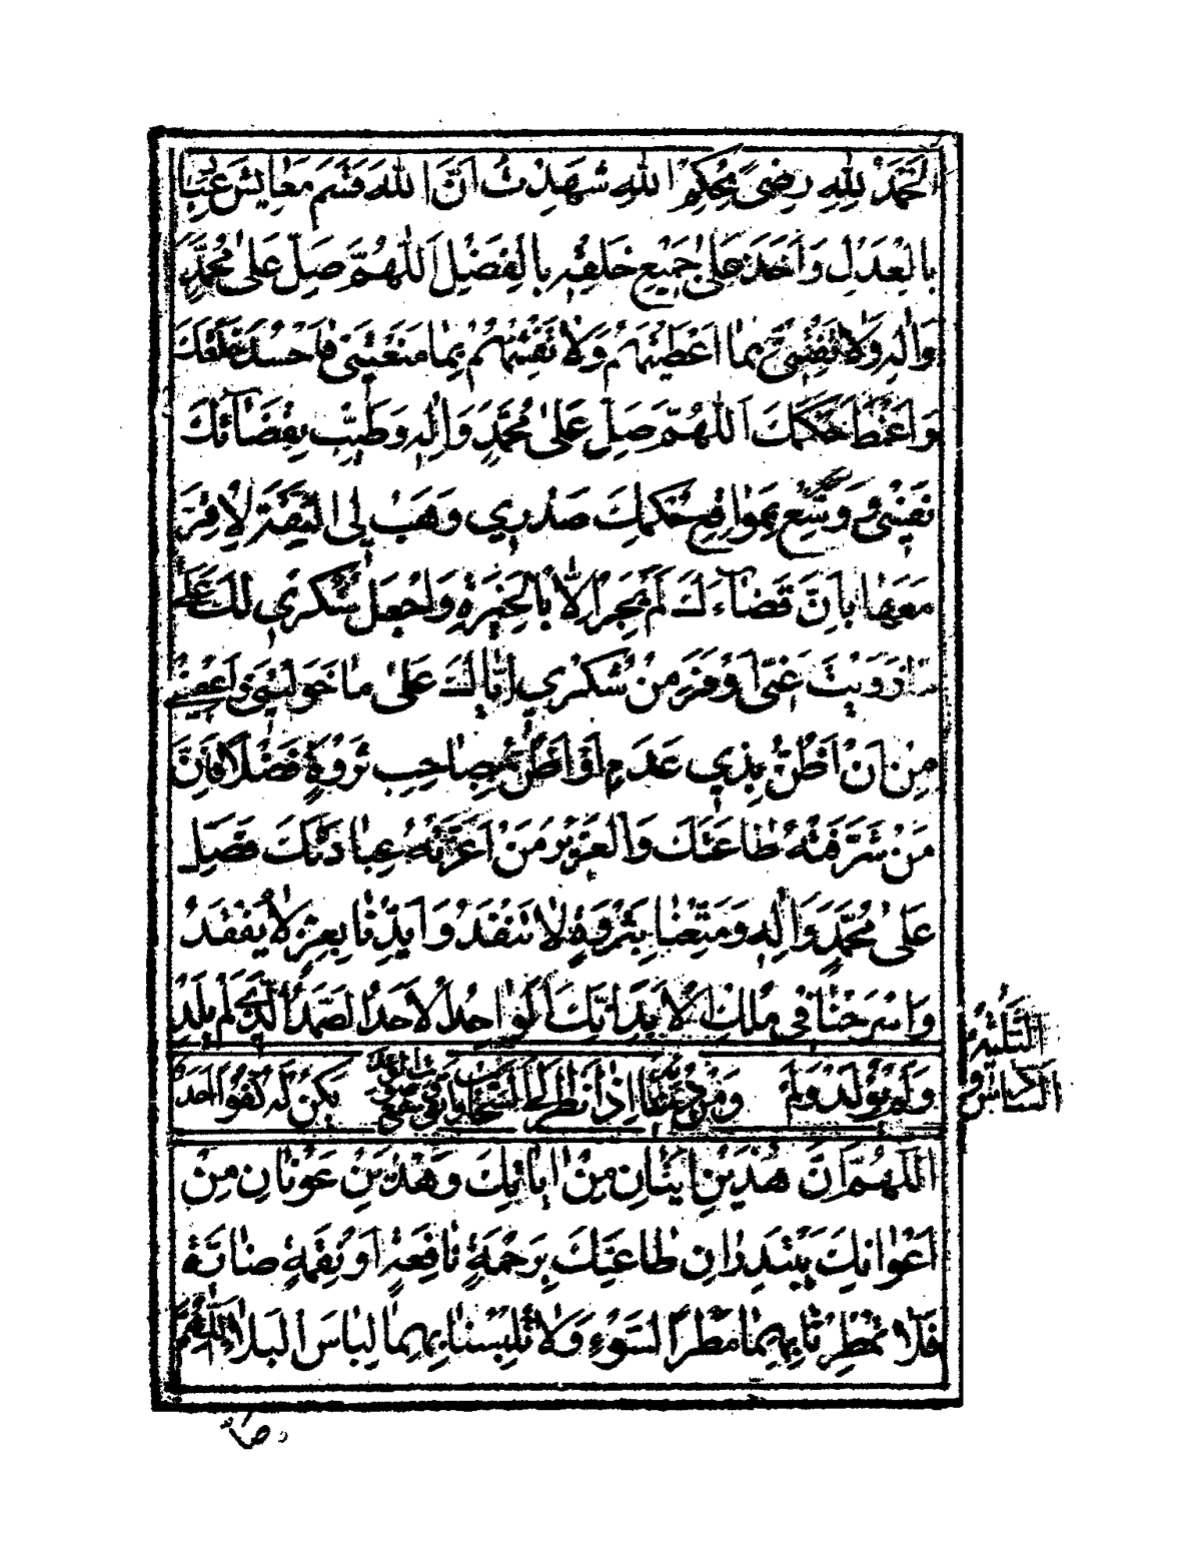 اَلْحَمْدُ لِلّٰهِ رِضىً بِحُكْمِ اللّٰهِ شَهِدْتُ اَنَّ اللّٰهَ قَسَمَ مَعَايِشَ عِبَادِهِ
بِالْعَدْلِ وَاَخَذَ عَلىٰ جَمِيْعِ خَلْقِهِ بِالْفَضْلِ اَللّٰهُمَّ صَلِّ عَلىٰ مُحَمَّدٍ
وَاٰلِهِ وَلَا تَفْتِنِّيْ بِمَا اَعْطَيْتَهُمْ وَلَا تَفْتِنْهُمْ بِمَا مَنَعْتَنِيْ فَاَحْسُدَ خَلْقَكَ
وَاَغْمِطَ حُكْمَكَ اَللّٰهُمَّ صَلِّ عَلىٰ مُحَمَّدٍ وَاٰلِهِ وَطَيِّبْ بِقَضَائِكَ
نَفْسِيْ وَوَسِّعْ بِمَوَاقِعِ حُكْمِكَ صَدْرِيْ وَهَبْ لِيَ الثِّقَةَ لِاُقِرَّ
مَعَهَا بِاَنَّ قَضَاءَكَ لَمْ يَجْرِ اِلَّا بِالْخِيَرَةِ وَاجْعَلْ شُكْرِيْ لَكَ عَلىٰ
مَا زَوَيْتَ عَنِّيْ اَوْفَرَ مِنْ شُكْرِيْ اِيَّاكَ عَلىٰ مَا خَوَّلْتَنِيْ وَاعْصِمْنِيْ
مِنْ اَنْ اَظُنَّ بِذِيْ عَدَمٍ اَوْ اَظُنَّ بِصَاحِبِ ثَرْوَةٍ فَضْلًا فَاِنَّ
مَنْ شَرَّفَتْهُ طَاعَتُكَ وَالْعَزِيْزَ مَنْ اَعَزَّتْهُ عِبَادَتُكَ فَصَلِّ
عَلىٰ مُحَمَّدٍ وَاٰلِهِ وَمَتِّعْنَا بِثَرْوَةٍ لَا تَنْفَدُ وَاَيِّدْنَا بِعِزٍّ لَا يُفْقَدُ
وَاسْرَحْنَا فِيْ مُلْكِ الْاَبَدِ اِنَّكَ الْوَاحِدُ الْاَحَدُ الصَّمَدُ الَّذِيْ لَمْ يَلِدْ
وَلَمْ يُوْلَدْ وَلَمْ وَمِنْ دُعَائِهِ اِذَا نَظَرَ اِلَى السَّحَابِ وَالْبَرْقِ وَسَمِعَ صَوْتَ الرَّعْدِ يَكُنْ لَهُ كُفُوًا اَحَدٌ
السَّادِسُ وَ الثَّلٰثُوْنَ
اَللّٰهُمَّ اِنَّ هٰذَيْنِ اٰيَتَانِ مِنْ اٰيَاتِكَ وَهٰذَيْنِ عَوْنَانِ مِنْ
اَعْوَانِكَ يَبْتَدِرَانِ طَاعَتَكَ بِرَحْمَةٍ نَافِعَةٍ اَوْ نَقِمَةٍ ضَارَّةٍ
فَلَا تُمْطِرْنَا بِهِمَا مَطَرَ السَّوْءِ وَلَا تُلْبِسْنَا بِهِمَا لِبَاسَ الْبَلَاءِ اَللّٰهُمَّ